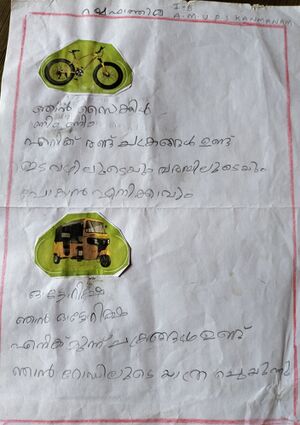 I-B
A.M.U.P.S KANMANAM
ഞാൻ സൈക്കിൾ
എനിക്ക് രണ്ട് ചക്രങ്ങൾ ഉണ്ട്
ഇടവഴിലൂടെയും വരമ്പിലൂടെയും
പോകാൻ എനിക്കാവും
ഓട്ടോറിക്ഷ
ഞാൻ ഓട്ടോറിക്ഷ
എനിക്ക് മൂന്ന് ചക്രങ്ങൾ ഉണ്ട്
ഞാൻ റോഡിലൂടെ യാത്ര ചെയ്യുന്നു